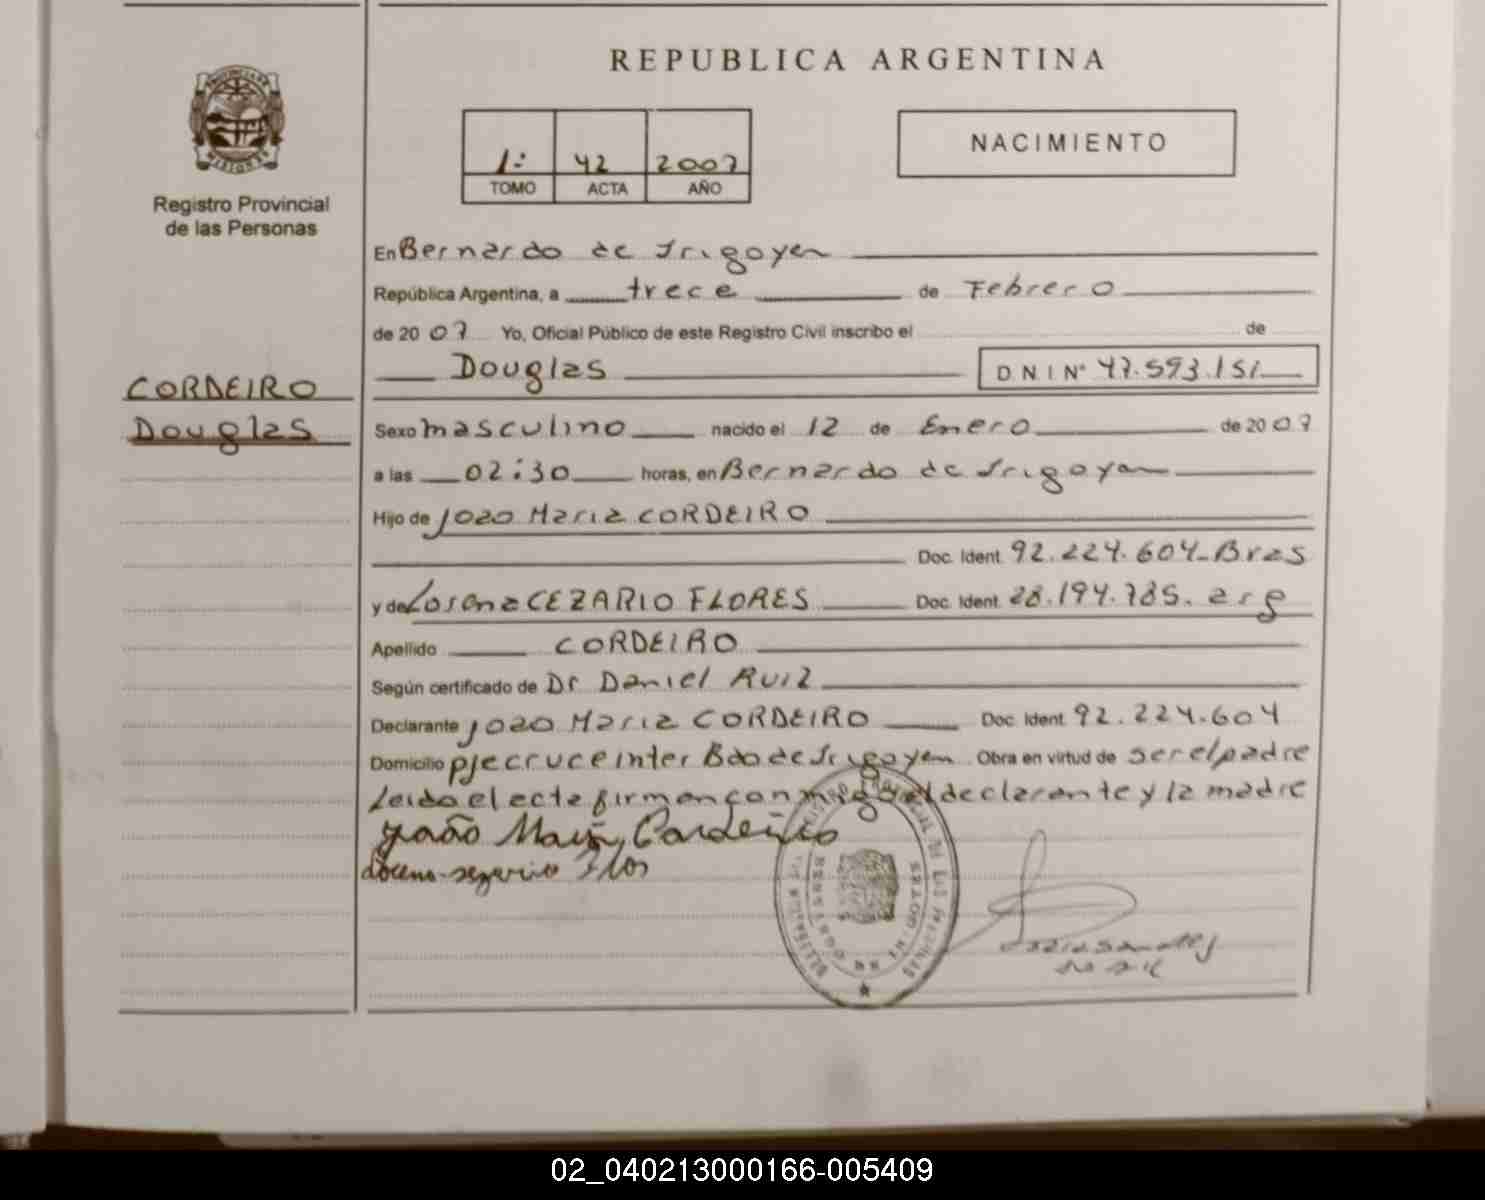 REPUBLICA ARGENTINA
PROVINCIA DE MISIONES
Registro Provincial
de las Personas
NACIMIENTO
1: 42 2007
TOMO ACTA AÑO
En Bernardo de Irigoyen
República Argentina, a trece de Febrero
de 2007 Yo, Oficial Público de este Registro Civil inscribo el de
Douglas D.N.I Nº 47.593.151
CORDEIRO
Douglas
Sexo masculino nacido el 12 de Enero de 2007
a las 02:30 horas, en Bernardo de Irigoyen
Hijo de Joao Maria CORDEIRO
Doc. Ident. 92.224.604-Bras
y de Lorena CEZARIO FLORES Doc. Ident. 28.194.785. arg
Apellido CORDEIRO
Según certificado de Dr Daniel Ruiz
Declarante Joao Maria CORDEIRO Doc. Ident. 92.224.604
Domicilio pje cruce inter Bdo de Irigoyen Obra en virtud de ser el padre
Leido el acta firman con migo el declarante y la madre
02_040213000166-005409